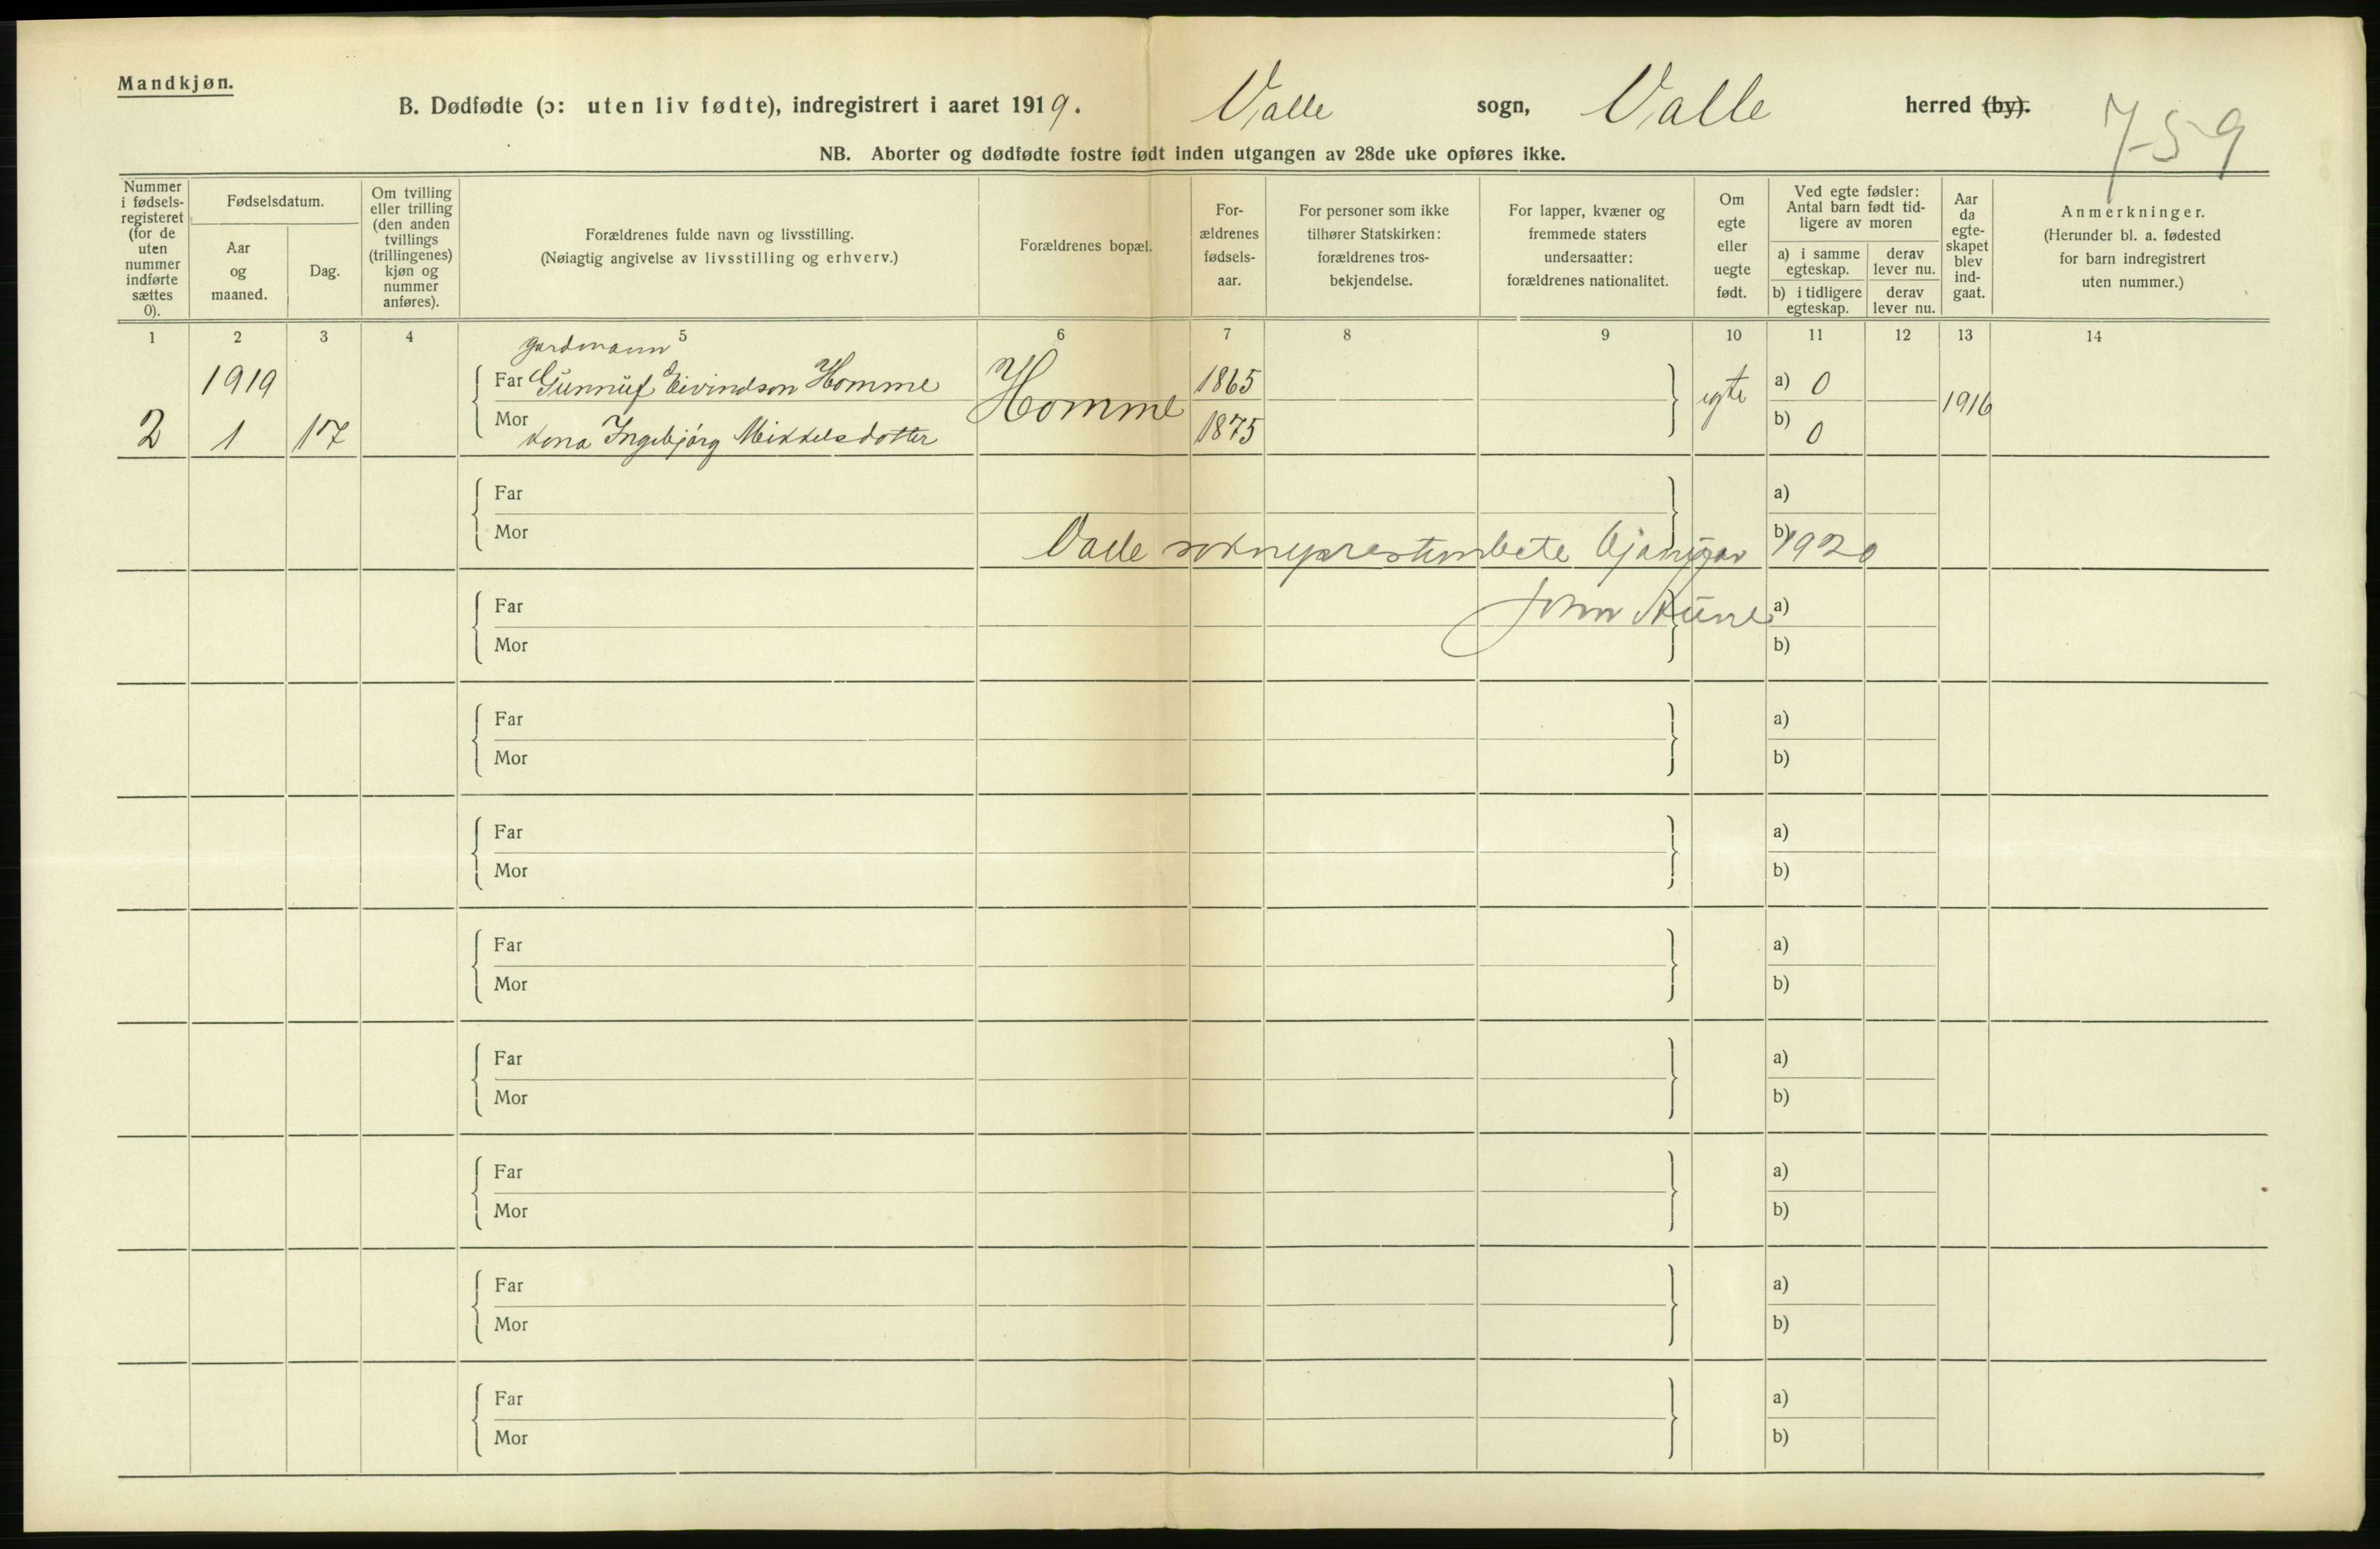 Mandkjøn.
B. Dødfødte (ɔ: uten liv fødte), indregistrert i aaret 1919. Valle sogn, Valle herred (by).
7-59
NB. Aborter og dødfødte fostre født inden utgangen av 28de uke opføres ikke.
Nummer i fødsels-registeret (for de uten nummer indførte sættes 0).
Fødselsdatum.
Aar og maaned.
Dag.
Om tvilling eller trilling (den anden tvillings (trillingenes) kjøn og nummer anføres).
Forældrenes fulde navn og livsstilling.
(Nøiagtig angivelse av livsstilling og erhverv.)
Forældrenes bopæl.
For-ældrenes fødsels-aar.
For personer som ikke tilhører Statskirken: forældrenes tros-bekjendelse.
For lapper, kvæner og fremmede staters undersaatter: forældrenes nationalitet.
Om egte eller uegte født.
Ved egte fødsler: Antal barn født tid-ligere av moren
a) i samme egteskap.
derav lever nu.
b) i tidligere egteskap.
derav lever nu.
Aar da egte-skapet blev ind-gaat.
Anmerkninger.
(Herunder bl. a. fødested for barn indregistrert uten nummer.)
1 2 3 4 5 6 7 8 9 10 11 12 13 14
gardmann
1919 Far Gunnuf Eivindson Homme Homme 1865 egte a) 0 1916
2 1 17 Mor kona Ingebjörg Mikkelsdotter 1875 b) 0
Far a)
Mor b)
Valle sokneprestembete 1920
Far a)
John Aune
Mor b)
Far a)
Mor b)
Far a)
Mor b)
Far a)
Mor b)
Far a)
Mor b)
Far a)
Mor b)
Far a)
Mor b)
Far a)
Mor b)